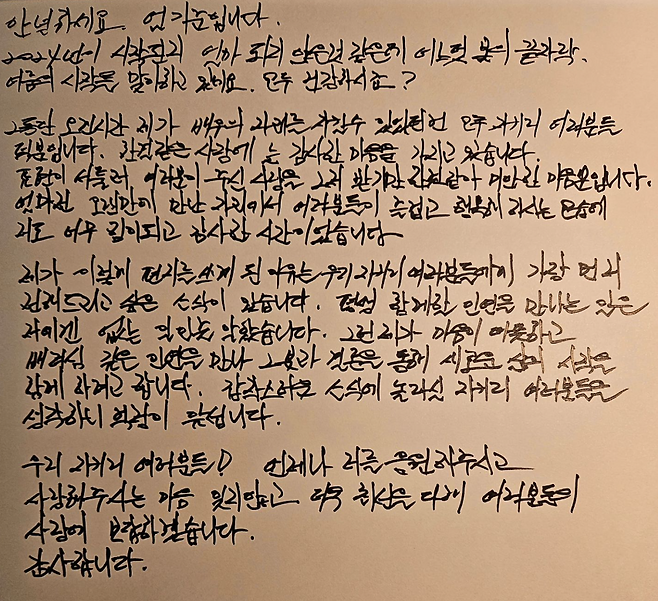 안녕하세요. 엄기준입니다.
2024년이 시작된지 얼마 되지 않은것 같은데 어느덧 봄의 끝자락.
여름의 시작을 말하고 있네요. 모두 건강하시죠?
그동안 오랜시간 제가 배우의 자리를 지킬수 있었던건 모두 지기리 여러분들
덕분입니다. 한결같은 사랑에 늘 감사한 마음을 가지고 있습니다.
표현이 서툴러 여러분이 주신 사랑을 그저 받기만 한것같아 미안한 마음뿐입니다.
얼마전 오랜만에 만난 자리에서 여러분들이 즐겁고 행복해 하시는 모습에
저도 너무 힘이되고 감사한 시간이었습니다
제가 이렇게 편지를 쓰게 된 이유는 우리 지기리 여러분들께 가장 먼저
전해드리고 싶은 소식이 있습니다. 평생 함께할 인연을 만나는 일은
저에겐 없는 일인줄 알았습니다. 그런 제가 마음이 따뜻하고
배려심 깊은 인연을 만나 그분과 결혼을 통해 새로운 삶의 시작을
함께 하려고 합니다. 갑작스러운 소식에 놀라실 지기리 여러분들을
생각하니 걱정이 듭니다.
우리 지기리 여러분들! 언제나 저를 응원해주시고
사랑해주시는 마음 잊지않고 더욱 최선을 다해 여러분들의
사랑에 보답하겠습니다.
감사합니다.